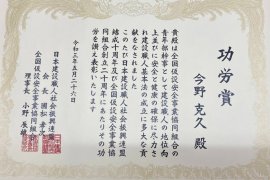 功労賞
今野克久 殿
貴殿は全国仮設安全事業協同組合の
青年部幹事として建設職人の地位向
上並びに安全と健康の確保に尽力さ
れ建設職人基本法の成立に多大な貢
献をなされました
このたび日本建設職人社会振興連盟
結成十周年及び全国仮設安全事業協
同組合創立二十周年にあたりその功
労を讃え表彰いたします
令和二年五月二十六日
日本建設職人社会振興連盟
会長 國
全国仮設安全事業協同組合
理事長 小野辰雄